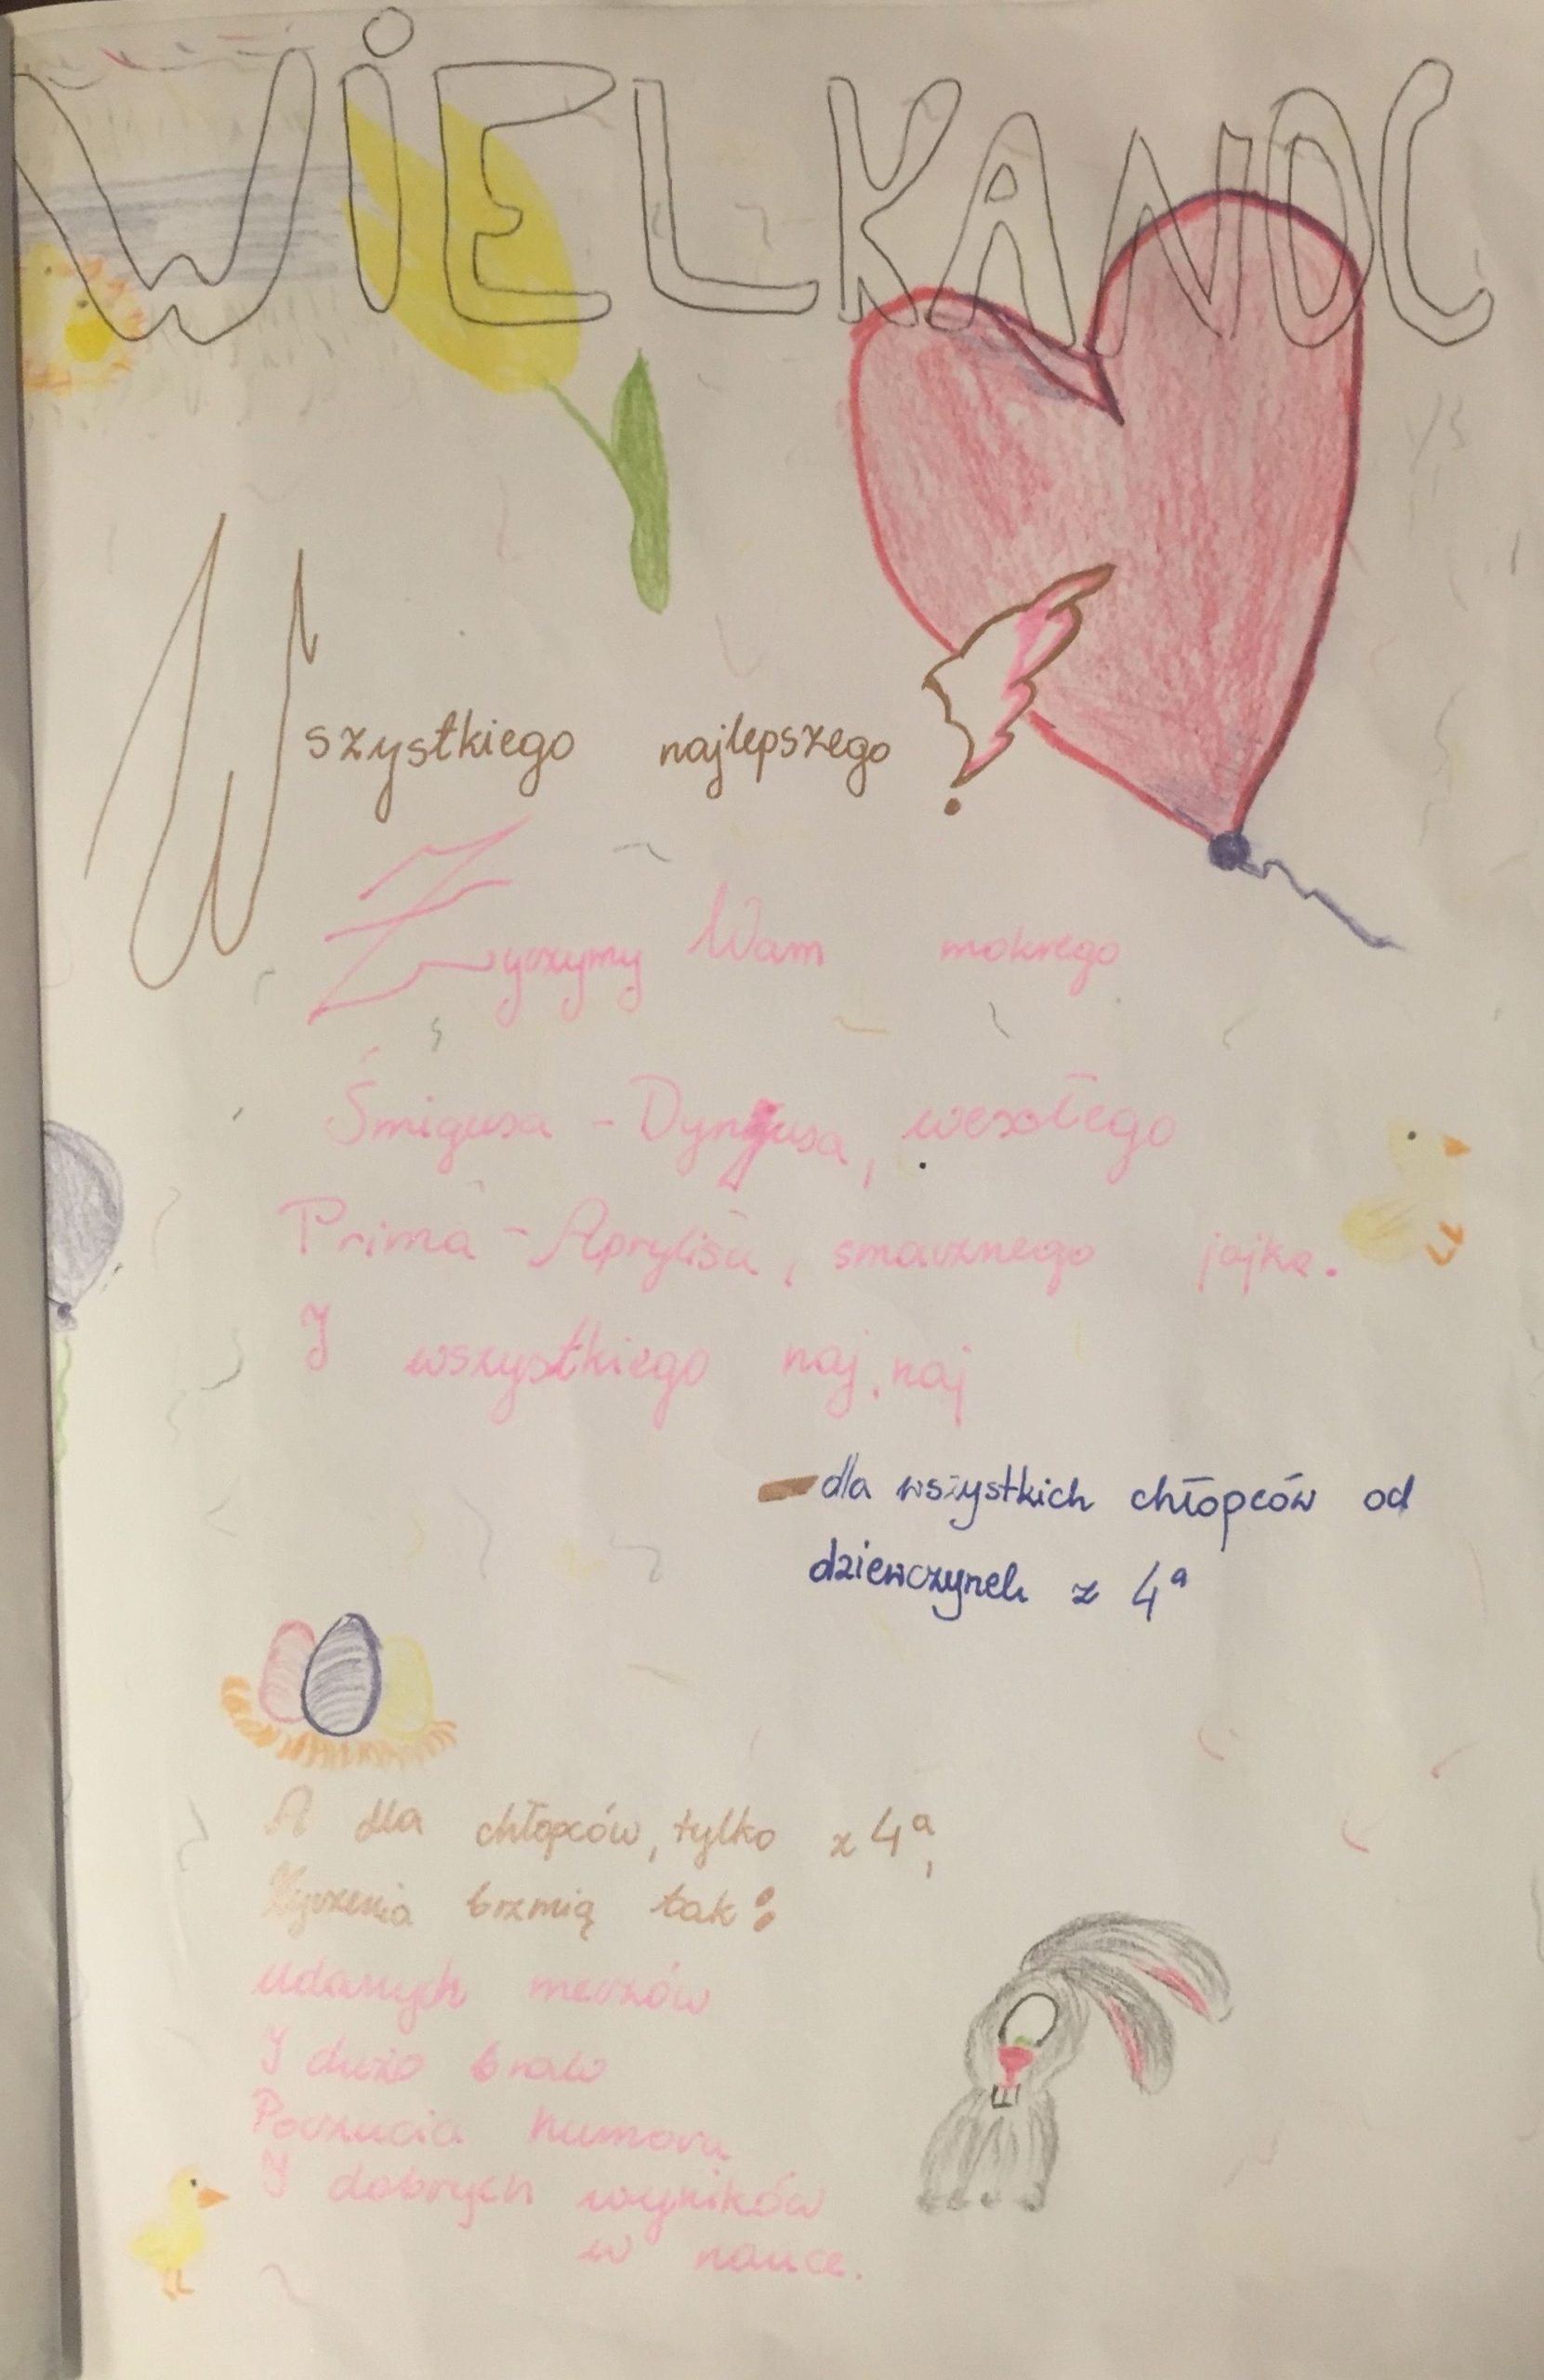 WiELKANOC
Wszystkiego najlepszego!
Życzymy Wam mokrego
Śmigusa - Dyngusa, wesołego
Prima - Aprylisu, smacznego jajka.
I wszystkiego naj, naj
- dla wszystkich chłopców od
dziewczynek z 4a
A dla chłopców, tylko z 4a,
Życzenia brzmią tak:
udanych meczów
I dużo braw
Poczucia humoru
I dobrych wyników
w nauce.